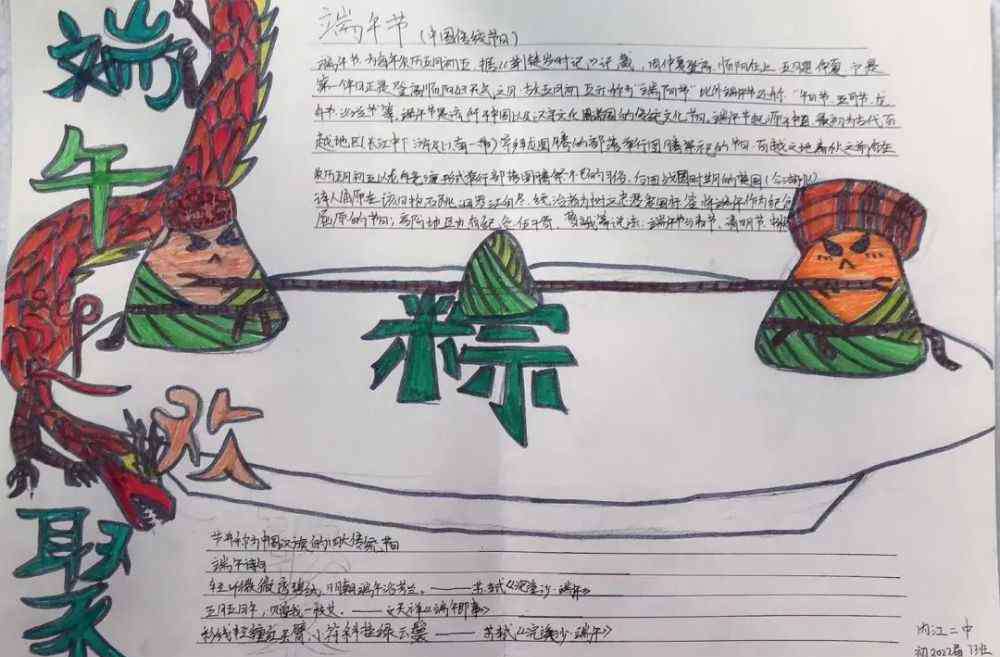 端午欢聚
端午节(中国传统节日)
端午节,为每年农历五月初五。据《荆楚岁时记》记载,因仲夏登高,顺阳在上,五月是仲夏,它是
第一个午日正是登高顺阳好天气之日,故五月初五亦称为"端阳节"。此外端午节还称"午日节、五月节、龙
舟节、浴兰节"等。端午节是流行于中国以及汉字文化圈诸国的传统文化节日。端午节起源于中国,最初为古代百
越地区(长江中下游及以南一带)崇拜龙图腾的部族举行图腾祭祀的节日,百越之地春秋之前有在
农历五月初五以龙舟竞渡形式举行部落图腾祭祀的习俗。后因战国时期的楚国(今湖北)
诗人屈原在该日抱石跳汨罗江自尽,统治者为树立忠君爱国标签将端午作为纪念
屈原的节日;部分地区也有纪念伍子胥、曹娥等说法。端午节与春节、清明节、中秋
粽
节并称为中国汉族的四大传统节日
端午诗句
轻汗微微透碧纨,明朝端午浴芳兰。——苏轼《浣溪沙·端午》
五月五日午,赠我一枝艾。——文天祥《端午即事》
彩线轻缠红玉臂,小符斜挂绿云鬟——苏轼《浣溪沙·端午》
内江二中
初2022届13班